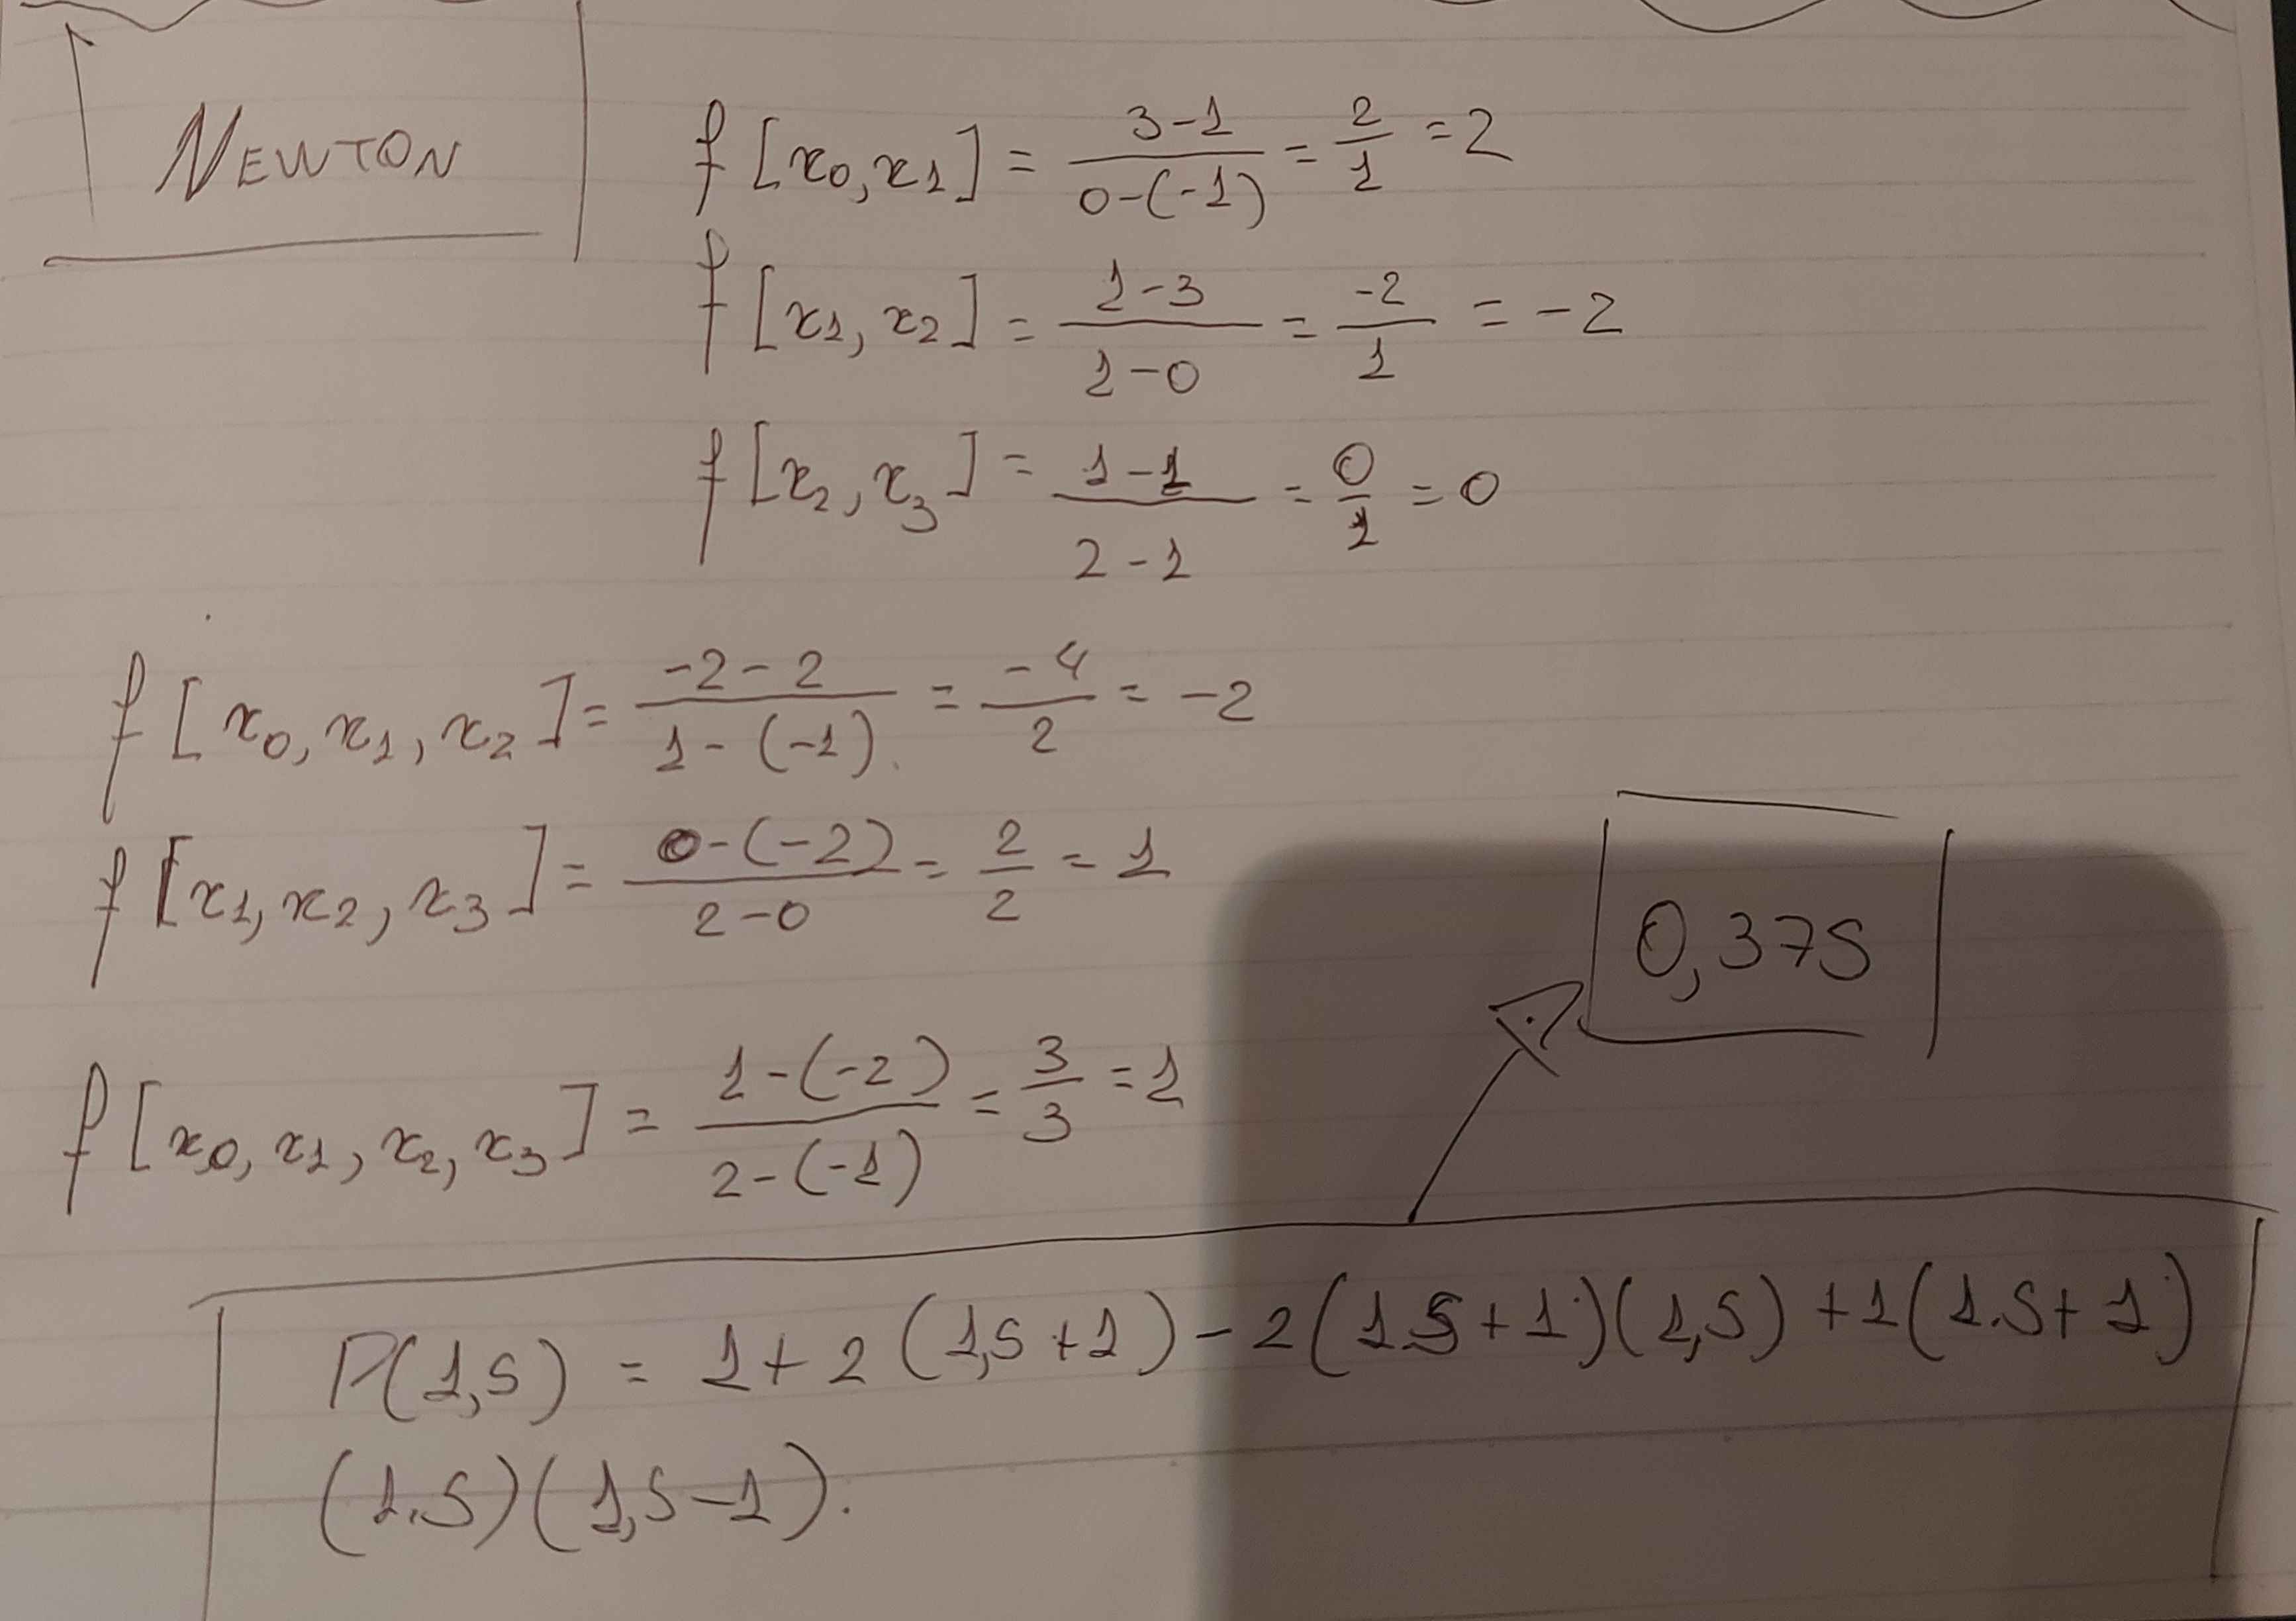 NEWTON
f[x0,x1] = 3-1 / 0-(-1) = 2/1 = 2
f[x1,x2] = 1-3 / 1-0 = -2/1 = -2
f[x2,x3] = 1-1 / 2-1 = 0/1 = 0
f[x0,x1,x2] = -2-2 / 1-(-1) = -4/2 = -2
f[x1,x2,x3] = 0-(-2) / 2-0 = 2/2 = 1
0,375
f[x0,x1,x2,x3] = 1-(-2) / 2-(-1) = 3/3 = 1
P(1,5) = 1+2(1,5+1)-2(1.5+1)(1,5)+1(1.5+1)
(1.5)(1,5-1).